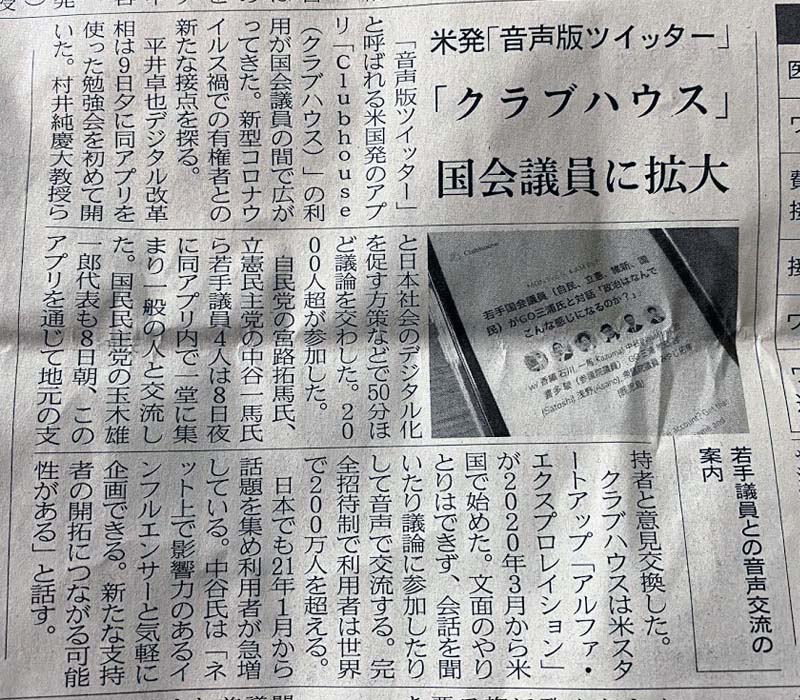 米発「音声版ツイッター」
「クラブハウス」
国会議員に拡大
「音声版ツイッター」
と呼ばれる米国発のアプ
リ「Clubhouse
(クラブハウス)」の利
用が国会議員の間で広が
ってきた。新型コロナウ
イルス禍での有権者との
新たな接点を探る。
平井卓也デジタル改革
相は9日夕に同アプリを
使った勉強会を初めて開
いた。村井純慶大教授ら
と日本社会のデジタル化
を促す方策などで50分ほ
ど議論を交わした。20
00人超が参加した。
自民党の宮路拓馬氏、
立憲民主党の中谷一馬氏
ら若手議員4人は8日夜
に同アプリ内で一堂に集
まり一般の人と交流し
た。国民民主党の玉木雄
一郎代表も8日朝、この
アプリを通じて地元の支
持者と意見交換した。
クラブハウスは米スタ
ートアップ「アルファ・
エクスプロレイション」
が2020年3月から米
国で始めた。文面のやり
とりはできず、会話を聞
いたり議論に参加したり
して音声で交流する。完
全招待制で利用者は世界
で200万人を超える。
日本でも21年1月から
話題を集め利用者が急増
している。中谷氏は「ネ
ット上で影響力のあるイ
ンフルエンサーと気軽に
企画できる。新たな支持
者の開拓につながる可能
性がある」と話す。
Clubhouse
若手国会議員(自民、立憲、維新、国
民)がGO三浦氏と対話「政治はなんで
こんな感じになるのか?」
若手議員との音声交流の
案内